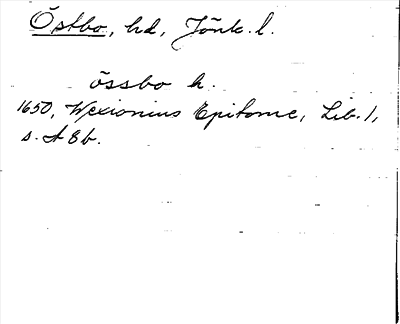 Östbo, hd, Jönk. l.
össbo h.
1650, Wexionius Epitome, Lib. 1,
s. A 8 b.